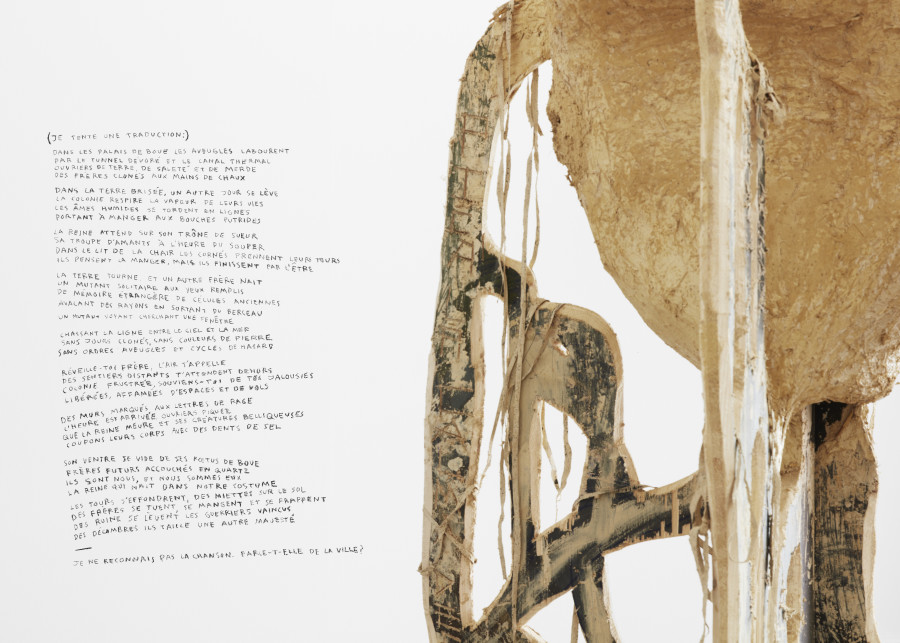 (JE TENTE UNE TRADUCTION:)
DANS LES PALAIS DE BOUE LES AVEUGLES LABOURENT
PAR LE TUNNEL DEVORÉ ET LE CANAL THERMAL
OUVRIERS DE TERRE, DE SALETÉ ET DE MERDE
DES FRÈRES CLONÉS AUX MAINS DE CHAUX
DANS LA TERRE BRISÉE, UN AUTRE JOUR SE LÈVE
LA COLONIE RESPIRE LA VAPEUR DE LEURS VIES
CES ÂMES HUMIDES SE TORDENT EN LIGNES
PORTANT À MANGER AUX BOUCHES PUTRIDES
LA REINE ATTEND SUR SON TRÔNE DE SUEUR
SA TROUPE D'AMANTS À L'HEURE DU SOUPER
DANS LE LIT DE LA CHAIR LES CORNÉS PRENNENT LEURS TOURS
ILS PENSENT LA MANGER, MAIS ILS FINISSENT PAR L'ÊTRE
LA TERRE TOURNE, ET UN AUTRE FRÈRE NAIT
UN MUTANT SOLITAIRE AUX YEUX REMPLIS
DE MÉMOIRE ÉTRANGÈRE DE CELULES ANCIENNES
AVALANT DES RAYONS EN SORTANT DU BERCEAU
UN MUTANT VOYANT CHERCHANT UNE FENÊTRE
CHASSANT LA LIGNE ENTRE LE CIEL ET LA MER
SANS JOURS CLONÉS, SANS COULEURS DE PIERRE
SANS ORDRES AVEUGLES ET CYCLES DE HASARD
RÉVEILLE-TOI FRÈRE, L'AIR S'APPELLE
DES SENTIERS DISTANTS T'ATTENDENT DEHORS
COLONIE FRUSTRÉE, SOUVIENS-TOI DE TES JALOUSIES
LIBÉRÉES, AFFAMÉES D'ESPACES ET DE VOLS
DES MURS MARQUÉS AUX LETTRES DE RAGE
L'HEURE EST ARRIVÉE OUVRIERS PIQUEZ
QUE LA REINE MEURE ET SES CRÉATURES BELLIQUEUSES
COUPONS LEURS CORPS AVEC DES DENTS DE SEL
SON VENTRE SE VIDE DE SES FŒTUS DE BOUE
FRÈRES FUTURS ACCOUCHÉS EN QUARTZ
ILS SONT NOUS, ET NOUS SOMMES EUX
LA REINE QUI NAIT DANS NOTRE COSTUME
LES TOURS S'EFFONDRENT, DES MIETTES SUR LE SOL
DES FRÈRES SE TUENT, SE MANGENT ET SE FRAPPENT
DES RUINE SE LÈVENT LES GUERRIERS VAINCUS
DES DÉCOMBRES ILS TAILLE UNE AUTRE MAJESTÉ
JE NE RECONNAIS PAS LA CHANSON. PARLE-T-ELLE DE LA VILLE?